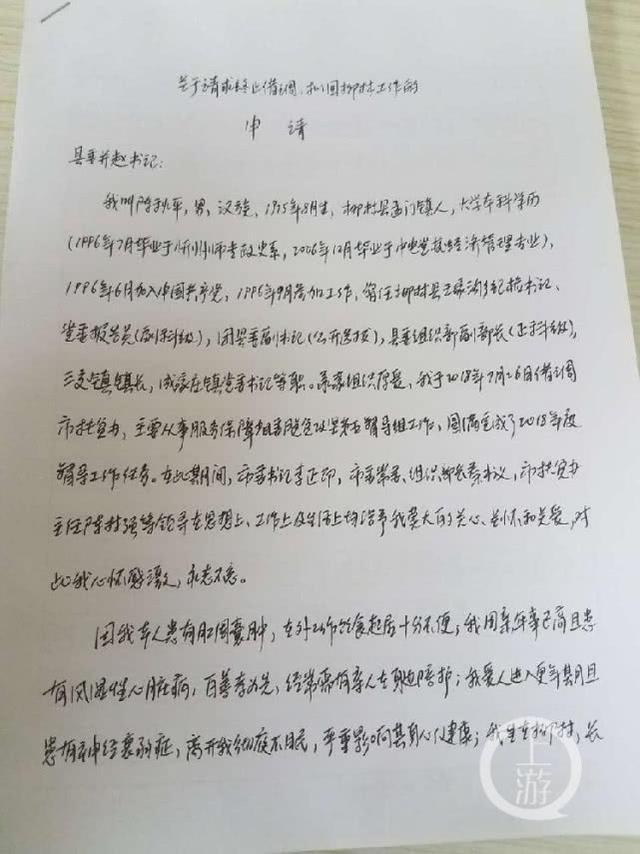 关于请求终止借调、拟回柳林工作的
申 请
县委并赵书记:
我叫陈秋平,男,汉族,1975年8月生,柳林县孟门镇人,大学本科学历
(1996年7月毕业于忻州师专政史系,2006年12月毕业于中央党校经济管理专业),
1996年6月加入中国共产党,1996年9月参加工作,曾任柳林县王家沟乡纪检书记、
党委报告员(副科级),团县委副书记(公开选拔),县委组织部副部长(正科级),
三交镇镇长,成家庄镇党委书记等职。承蒙组织厚爱,我于2018年7月26日借调
市扶贫办,主要从事服务保障脱贫攻坚督导组工作,圆满完成了2018年度
督导工作任务。在此期间,市委书记李正印,市委常委、组织部长秦书义,市扶贫办
主任陈林强等领导在思想上、工作上及生活上均给予我莫大的关心、关怀和关爱,对
此我心怀感激,永志不忘。
因我本人患有肛周囊肿,在外工作饮食起居十分不便;我母亲年事已高且患
有风湿性心脏病,百善孝为先,经常需有亲人在身边陪护;我爱人进入更年期且
患有神经衰弱症,离开我彻夜不眠,严重影响其身心健康;我生在柳林,长
上游